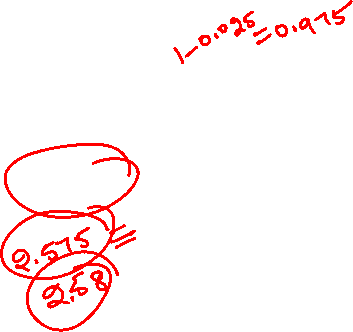 1-0.025=0.975
2.575=
2.58